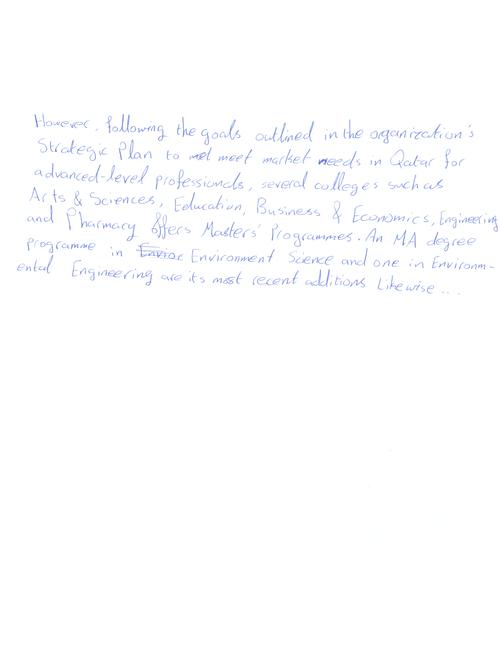 However, following the goals outlined in the organization's
Strategic Plan to meet market needs in Qatar for
advanced-level professionals, several colleges such as
Arts & Sciences, Education, Business & Economics, Engineering
and Pharmacy offers Masters' Programmes. An MA degree
programme in Environment Science and one in Environm-
ental Engineering are its most recent additions Likewise ...